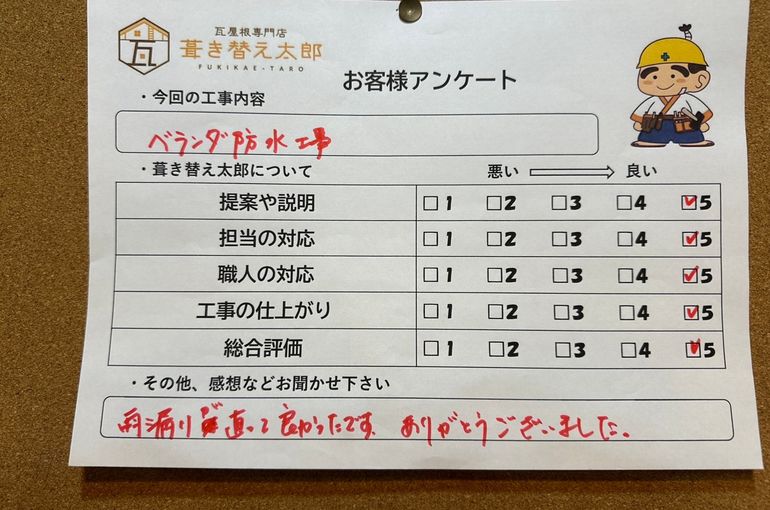 瓦屋根専門店
葺き替え太郎
FUKIKAE-TARO
お客様アンケート
・今回の工事内容
ベランダ防水工事
・葺き替え太郎について 悪い 良い
提案や説明 □1 □2 □3 □4 ☑5
担当の対応 □1 □2 □3 □4 ☑5
職人の対応 □1 □2 □3 □4 ☑5
工事の仕上がり □1 □2 □3 □4 ☑5
総合評価 □1 □2 □3 □4 ☑5
・その他、感想などお聞かせ下さい
雨漏りが直って良かったです。ありがとうございました。